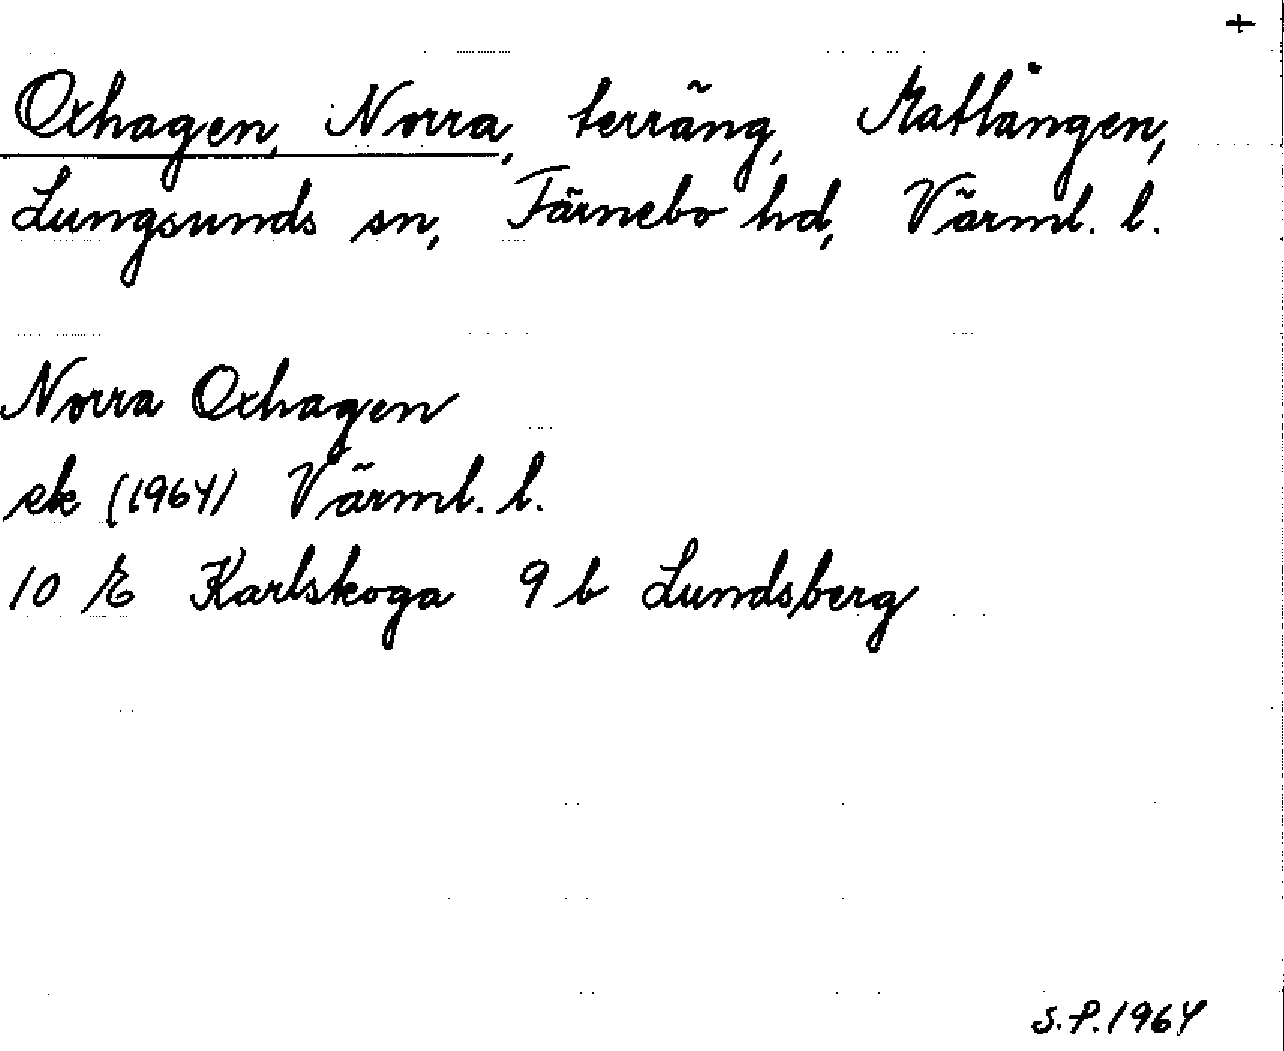 +
Oxhagen, Norra, terräng, Matlången,
Lungsunds sn, Färnebo hd, Värml. l.
Norra Oxhagen
ek (1964) Värml. l.
10 E Karlskoga 9 b Lundsberg
S.P. 1964